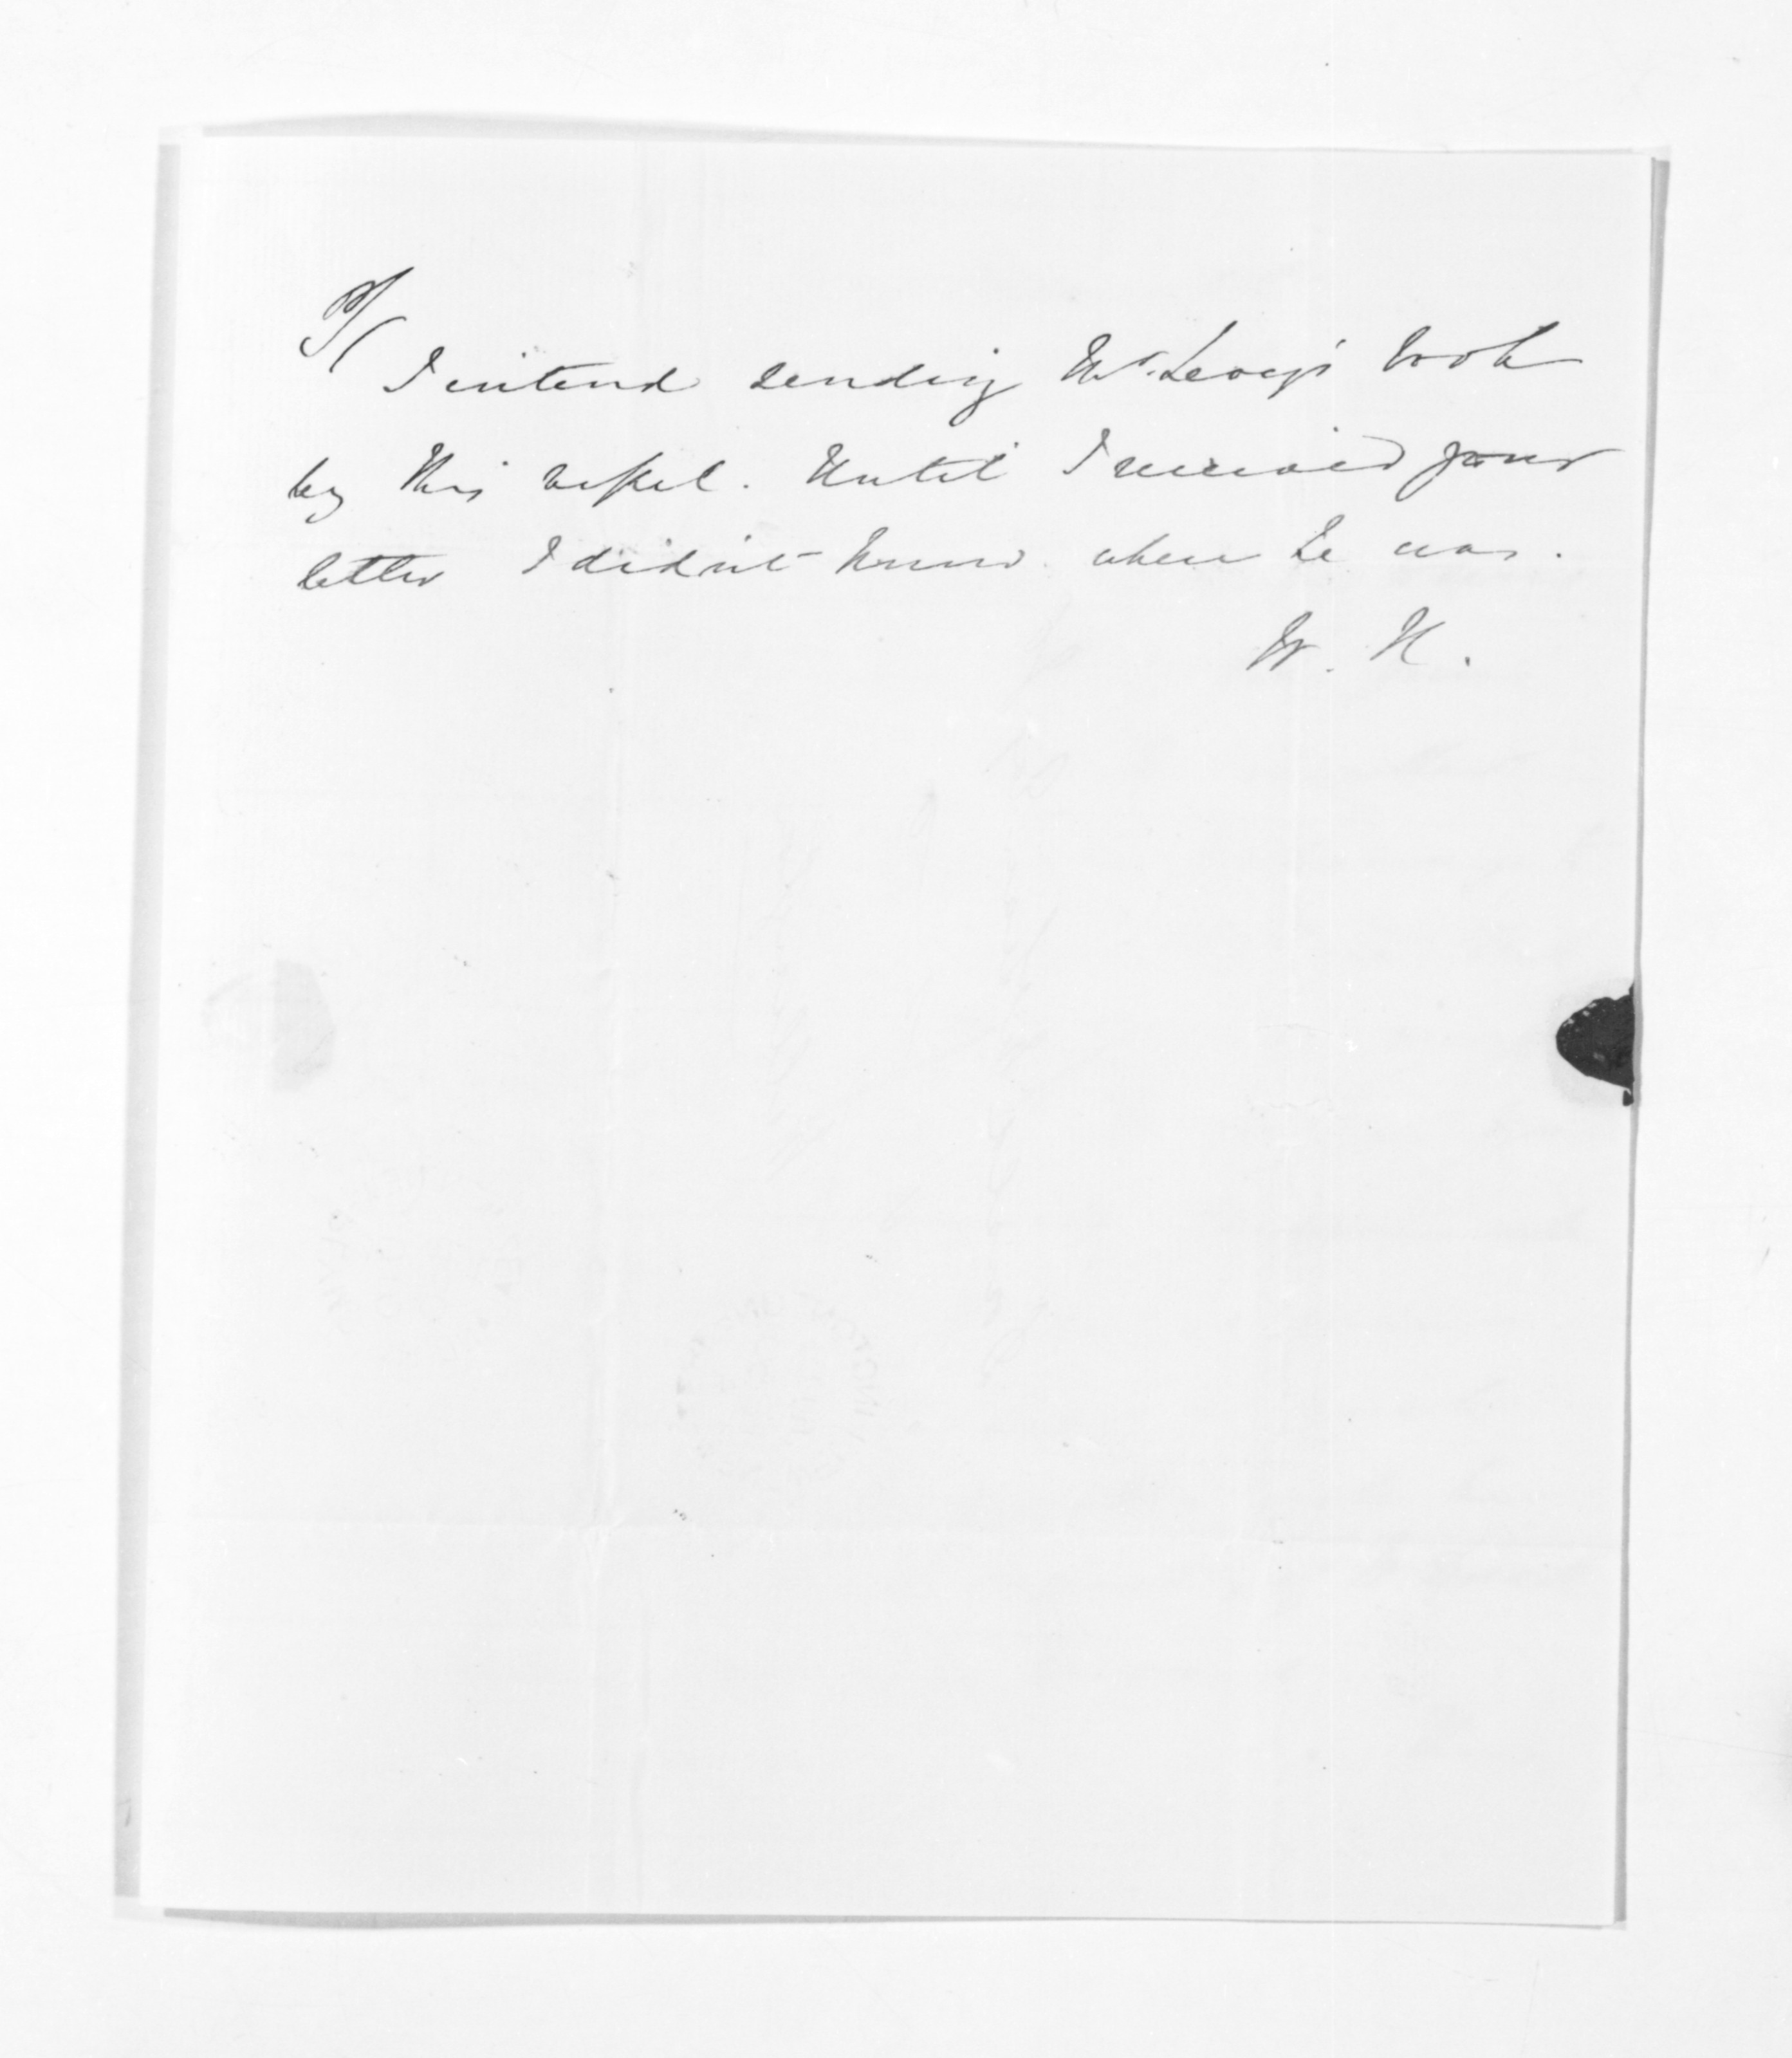 P/S
I intend sending Mr. Levy's book
by this vessel. Until I received your
letter I didn't know where he was.
W. K.